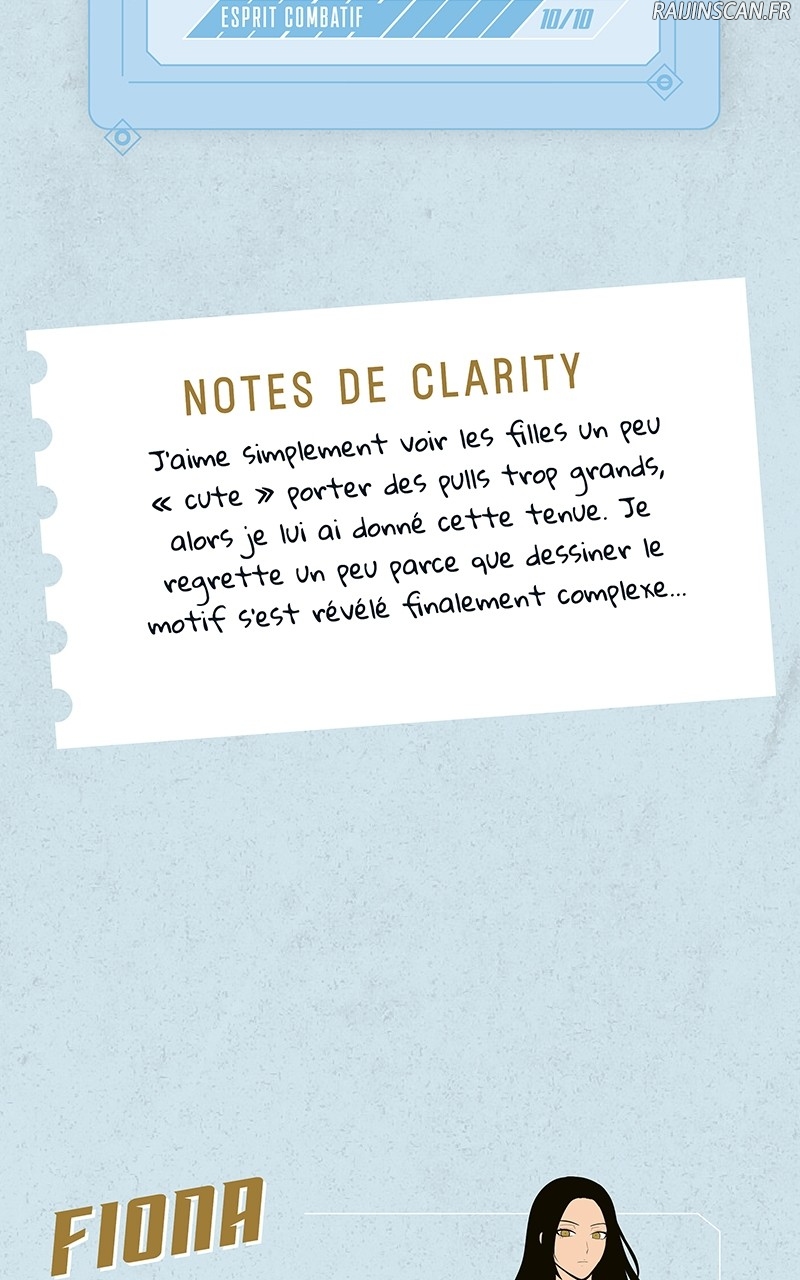 RAIJINSCAN.FR
ESPRIT COMBATIF 10/10
NOTES DE CLARITY
J'aime simplement voir les filles un peu
« cute » porter des pulls trop grands,
alors je lui ai donné cette tenue. Je
regrette un peu parce que dessiner le
motif s'est révélé finalement complexe...
FIONA